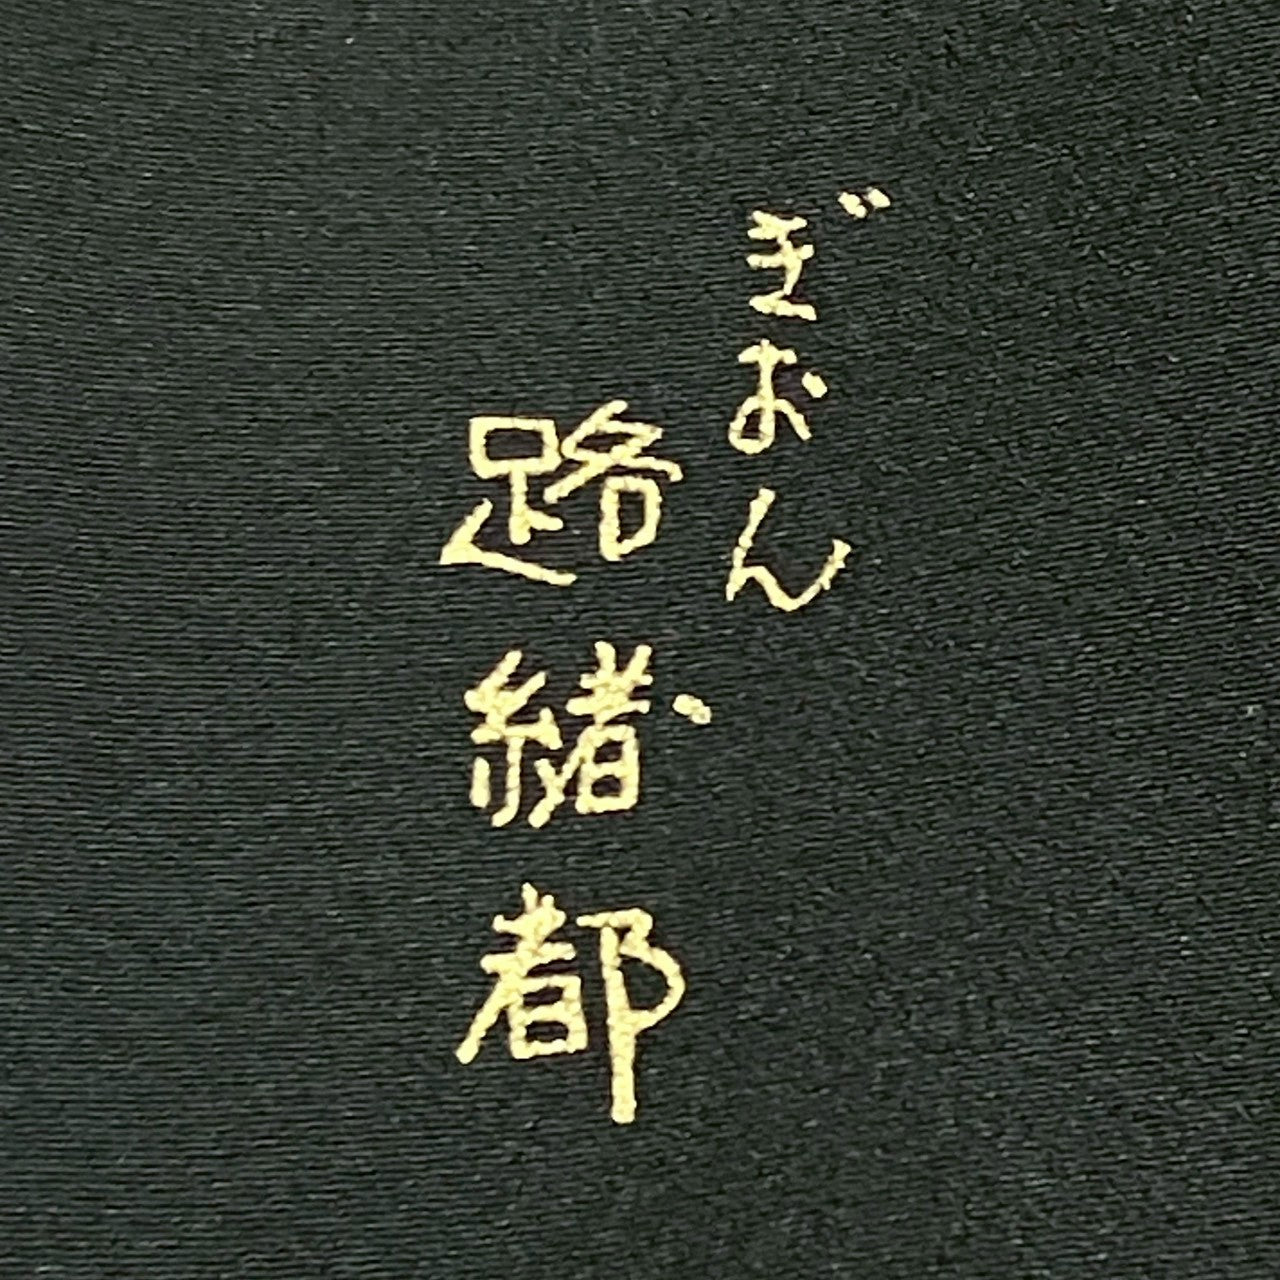 ぎおん
路緒都